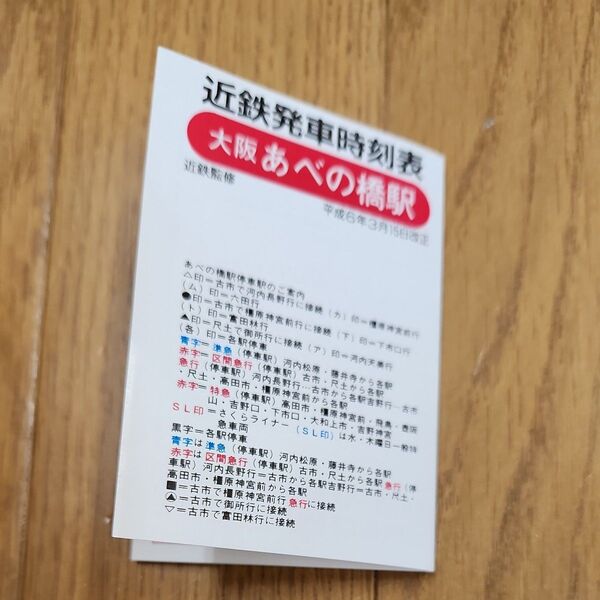 近鉄発車時刻表
大阪 あべの橋駅
近鉄監修
平成6年3月15日改正
あべの橋駅停車駅のご案内
△印＝古市で河内長野行に接続 (カ) 印＝橿原神宮前行
(ム) 印＝六田行
●印＝古市で橿原神宮前行に接続 (下) 印＝下市口行
(ト) 印＝富田林行
▲印＝尺土で御所行に接続 (ア) 印＝河内天美行
(各) 印＝各駅停車
青字＝準急 (停車駅) 河内松原・藤井寺から各駅
赤字＝区間急行 (停車駅) 古市・尺土から各駅
急行 (停車駅) 河内長野行＝古市から各駅吉野行＝古市
・尺土・高田市・橿原神宮前から各駅
赤字＝特急 (停車駅) 高田市・橿原神宮前・飛鳥・壺阪
山・吉野口・下市口・大和上市・吉野神宮
SL印＝さくらライナー (SL印) は水・木曜日一般特
急車両
黒字＝各駅停車
青字は準急 (停車駅) 河内松原・藤井寺から各駅
赤字は区間急行 (停車駅) 古市・尺土から各駅急行 (停
車駅) 河内長野行＝古市から各駅吉野行＝古市・尺土・
高田市・橿原神宮前から各駅
■＝古市で橿原神宮前行急行に接続
▲＝古市で御所行に接続
▽＝古市で富田林行に接続